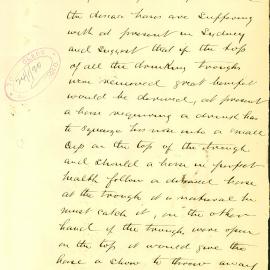 the disease horses are suffering
with at present in Sydney
and suggest that if the tops
of all the drinking troughs
were removed great benefit
would be derived, at present
a horse requiring a drink has
to squeeze his nose into a small
on the top of the trough
and should a horse in perfect
health follow a diseased horse
at the trough, it natural he
must catch it, on the other
hand if the trough were open
on the top it would give the
horse a show to throw away